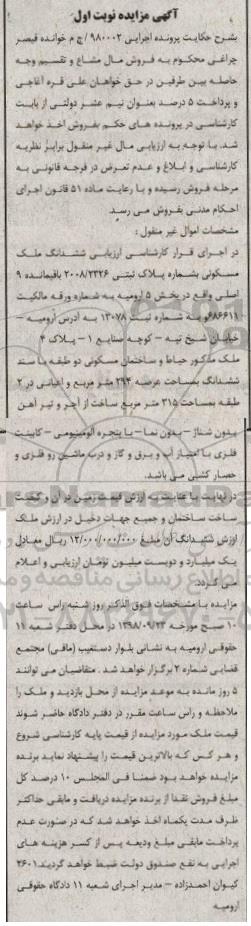 آگهی مزایده نوبت اول
بشرح حکایت پرونده اجرایی ۹۸۰۰۰۲ / ج م خوانده قیصر
چراغی محکوم به فروش مال مشاع و تقسیم وجه
حاصله بین طرفین در حق خواهان علی قره آغاجی
و پرداخت ۵ درصد بعنوان نیم عشر دولتی از بابت
کارشناسی در پرونده های حکم بفروش اخذ خواهد
شد. با توجه به ارزیابی مال غیر منقول برابر نظریه
کارشناسی و ابلاغ و عدم تعرض در فرجه قانونی به
مرحله فروش رسیده و با رعایت ماده ۵۱ قانون اجرای
احکام مدنی بفروش می رسد.
مشخصات اموال غیر منقول :
در اجرای قرار کارشناسی ارزیابی ششدانگ ملک
مسکونی بشماره پلاک ثبتی ۲۰۰۸/۲۳۲۶ باقیمانده ۹
اصلی واقع در بخش ۵ ارومیه به شماره ورقه مالکیت
۶۸۶۶۱۱و به شماره ثبت ۱۳۰۷۸ به آدرس ارومیه –
خیابان شیخ تپه – کوچه صنایع ۱ – پلاک ۴
ملک مذکور حیاط و ساختمان مسکونی دو طبقه با سند
ششدانگ بمساحت عرصه ۲۹۴ متر مربع و اعیانی در ۲
طبقه بمساحت ۳۱۵ متر مربع ساخت از آجر و تیر آهن
بدون شناژ – بدون نما – با پنجره آلومینیومی – کابینت
فلزی با امتیاز آب و برق و گاز و درب ماشین رو فلزی و
حصار کشی می باشد.
در نهایت با عنایت به ارزش قیمت زمین در آن و کیفیت
ساخت ساختمان و جمیع جهات دخیل در ارزش ملک
ارزش ششدانگ آن مبلغ ۱۲/۰۰۰/۰۰۰/۰۰۰ ریال معادل
یک میلیارد و دویست میلیون تومان ارزیابی و اعلام
می گردد.
مزایده با مشخصات فوق الذکر روز شنبه راس ساعت
۱۰ صبح مورخه ۱۳۹۸/۰۹/۲۳ در محل دفتر شعبه ۱۱
حقوقی ارومیه به نشانی بلوار دستغیب (مافی) مجتمع
قضایی شماره ۲ برگزار خواهد شد. متقاضیان می توانند
۵ روز مانده به موعد مزایده از محل بازدید و ملک را
ملاحظه و راس ساعت مقرر در دفتر دادگاه حاضر شوند
قیمت ملک مورد مزایده از قیمت پایه کارشناسی شروع
و هر کس که بالاترین قیمت را پیشنهاد نماید برنده
مزایده خواهد بود ضمنا فی المجلس ۱۰ درصد کل
مبلغ فروش نقدا از برنده مزایده دریافت و مابقی حداکثر
ظرف مدت یکماه اخذ خواهد شد که در صورت عدم
پرداخت مابقی مبلغ ودیعه پس از کسر هزینه های
اجرایی به نفع صندوق دولت ضبط خواهد گردید.۲۶۰۱
کیوان احمدزاده – مدیر اجرای شعبه ۱۱ دادگاه حقوقی
ارومیه